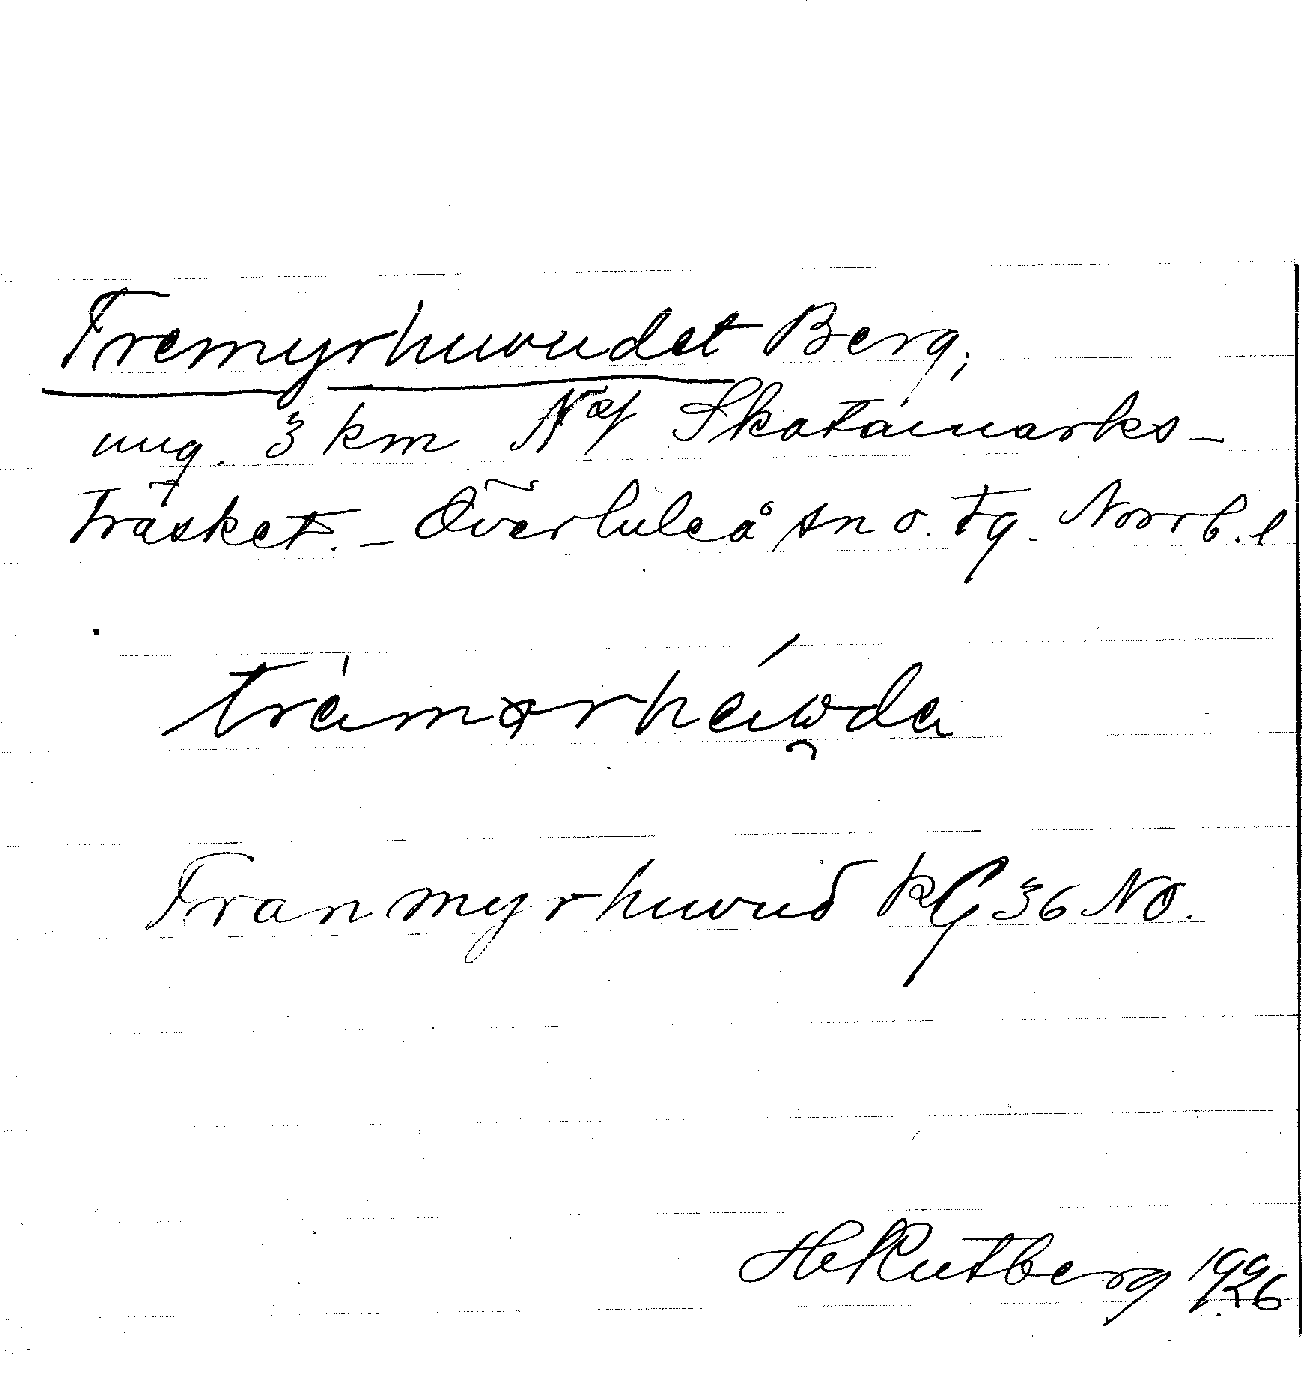 Tremyrhuvudet Berg,
ung. 3 km N af Skatamarks-
träsket. - Överluleå sn o. tg. Norrb. l
Tranmyrhuvud kG 36 NO.
HRutberg 1926